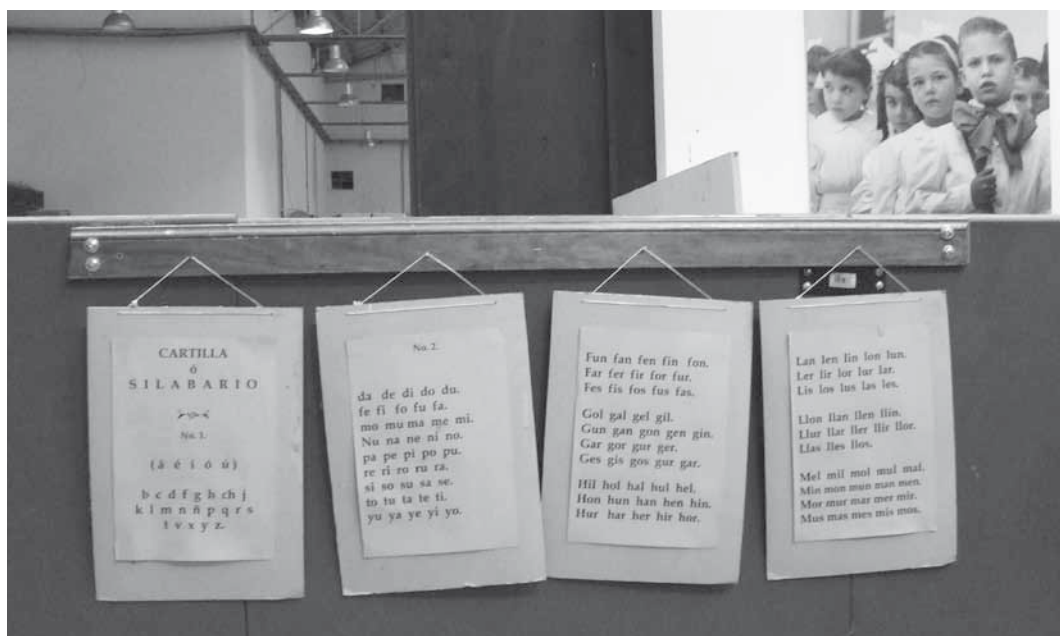 CARTILLA
ó
SILABARIO
No. 1.
(á é í ó ú)
b c d f g h ch j
k l m n ñ p q r s
t v x y z.
No. 2.
da de di do du.
fe fi fo fu fa.
mo mu ma me mi.
Nu na ne ni no.
pa pe pi po pu.
re ri ro ru ra.
si so su sa se.
to tu ta te ti.
yu ya ye yi yo.
Fun fan fen fin fon.
Far fer fir for fur.
Fes fis fos fus fas.
Gol gal gel gil.
Gun gan gon gen gin.
Gar gor gur ger.
Ges gis gos gur gar.
Hil hol hal hul hel.
Hon hun han hen hin.
Hur har her hir hor.
Lan len lin lon lun.
Ler lir lor lur lar.
Lis los lus las les.
Llon llan llen llin.
Llur llar ller llir llor.
Llas lles llos.
Mel mil mol mul mal.
Min mon mun man men.
Mor mur mar mer mir.
Mus mas mes mis mos.